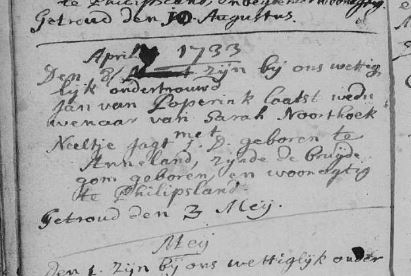 te Philipsland, en beyde woonagtig
Getroud den 10 Augustus.
April 1733
Den 8/ zijn bij ons wettig
lijk ondertrouwd
Jan van Poperink laatst wedu
wenaar van Sarah Noorthoek
met
Neeltje Jagt J. D. geboren te
Anneland, zijnde de bruijde
gom geboren, en woonagtig
te Philipsland
Getroud den 3 Meij.
Meij
Den 1. zijn bij ons wettiglijk onder